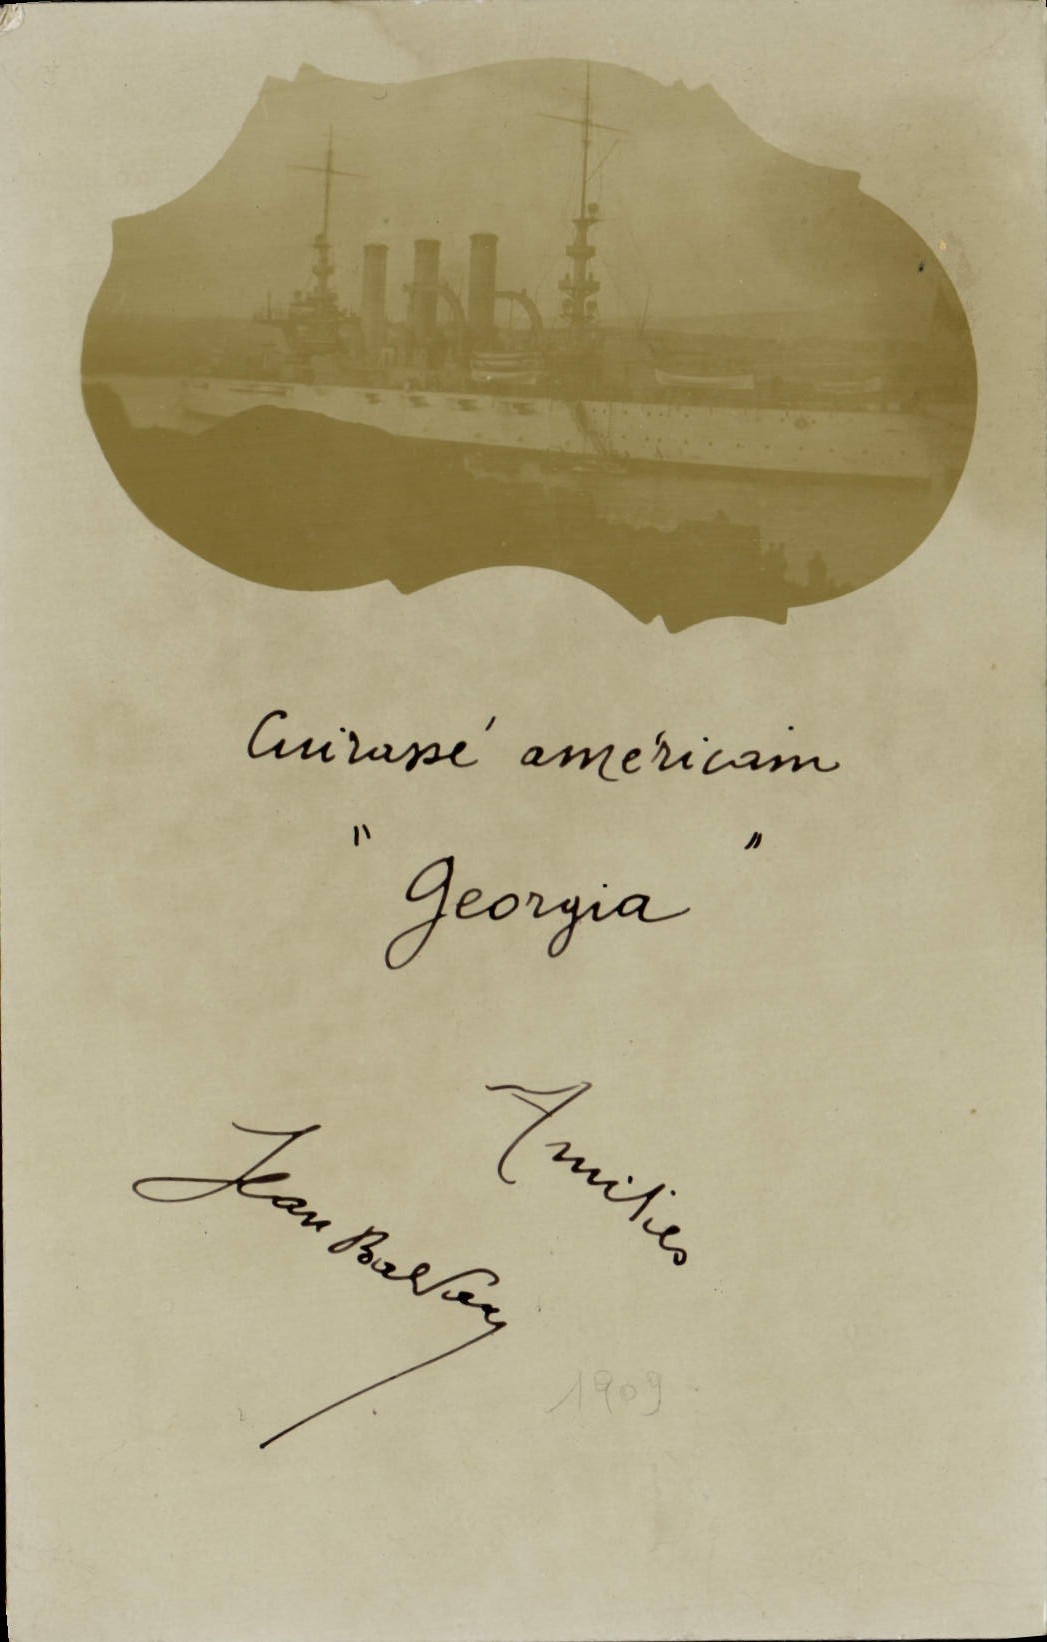 Cuirassé américain
"Georgia"
Amitiés
Jean
1909